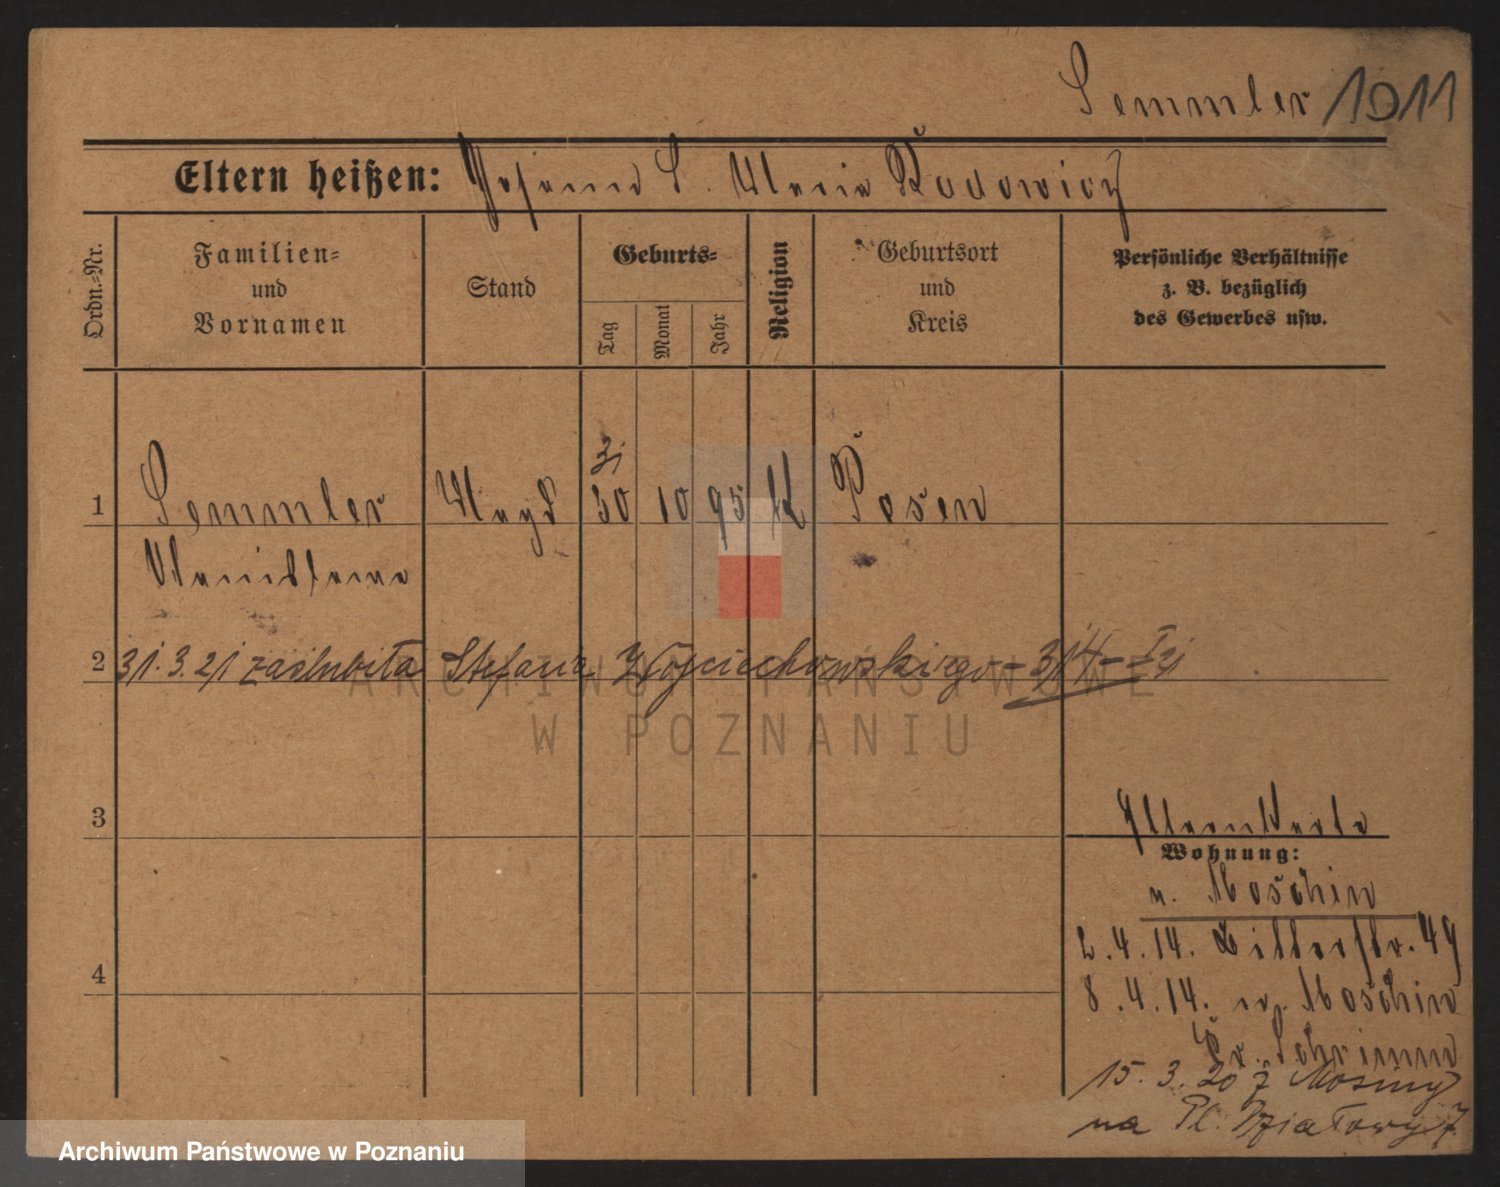 Semmler 1011
Eltern heißen: Johann S. Maria Radowicz
Ordn.-Nr.
Familien-
und
Vornamen
Stand
Geburts-
Tag
Monat
Jahr
Religion
Geburtsort
und
Kreis
Persönliche Verhältnisse
z. B. bezüglich
des Gewerbes usw.
31
1 Semmler Magd 30 10 95 K Posen
Stanislawa
2 31.3.21 zaślubiła Stefana Wojciechowskiego - 3/4 -
ARCHIWUM PAŃSTWOWE
W POZNANIU
3
Elternkarte
Wohnung:
n. Moschin
2.4.14. Ritterstr. 49
4
8.4.14. Moschin
Kr. Schrimm
15.3.20 z Mosiny
na Pl. Działowy 7
Archiwum Państwowe w Poznaniu